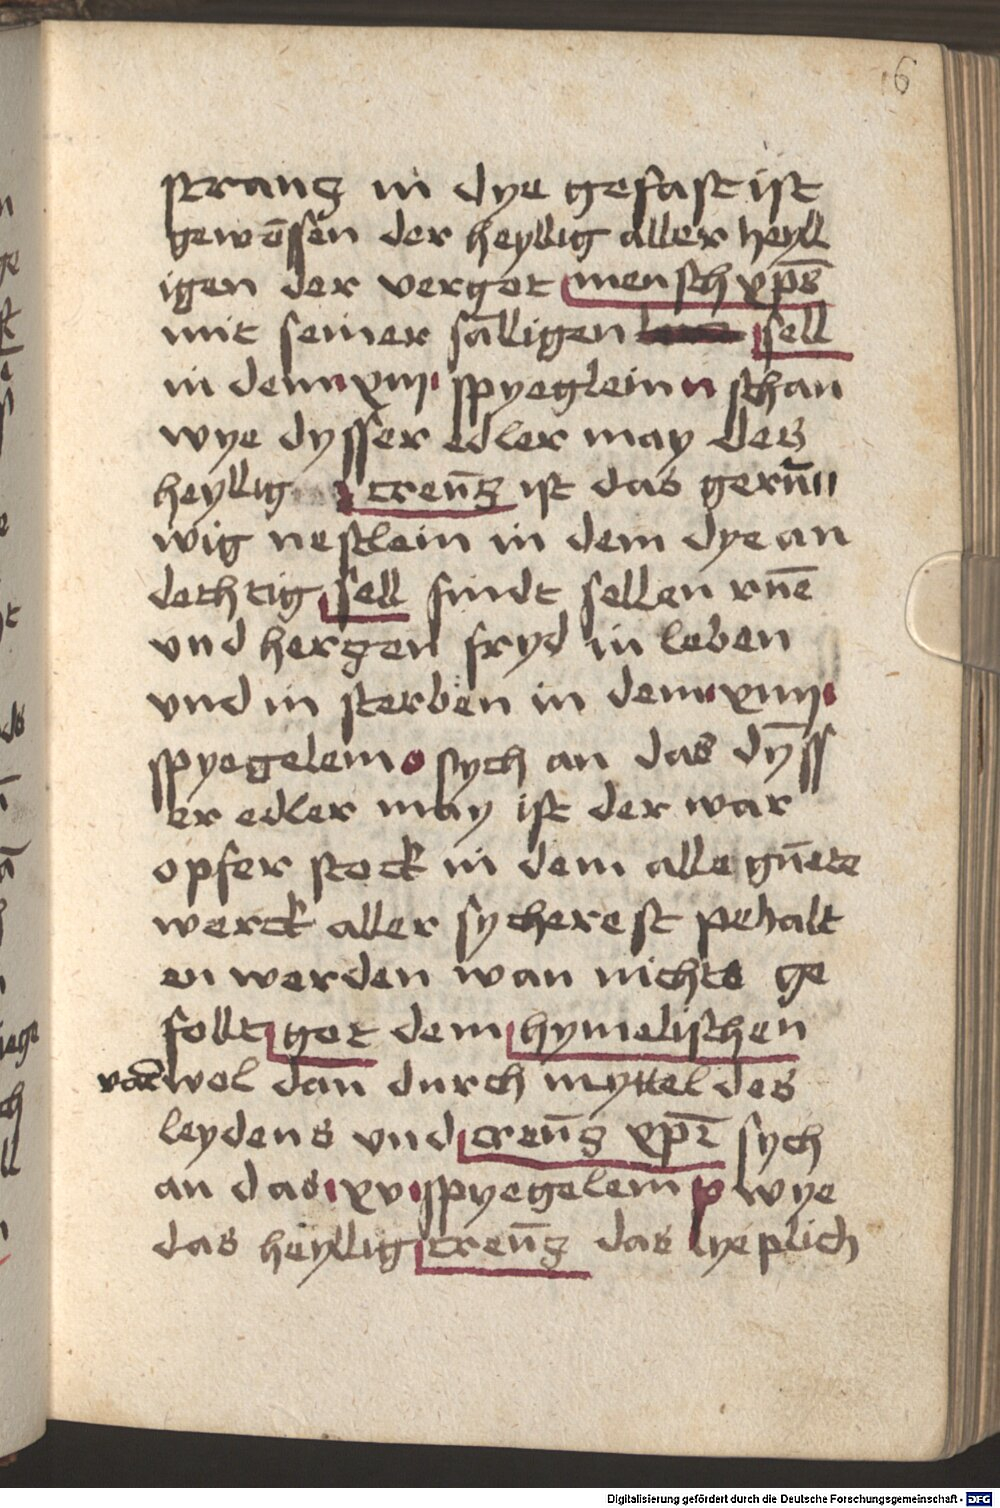 6
strang in dye gefast ist
gewēssen der heyllig aller heyll
igen der vergot mensch xp̄s
mit seiner salligen sell
in dem xiiij spyeglein n schau
wye dysser edler may des
heyllig creūtz ist das gerūu
wig nestlein in dem dye an
dechtig sell findt sellen rūe
vnd hertzen fryd in leben
vnd in sterben in dem xiiiij
spyegelem o sych an das dȳss
er edler may ist der war
opfer stock in dem alle gūete
werck aller sycherest pehalt
en werden wan nichts ge
follt got dem hymelischen
vat wol dan durch myttel des
leydens vnd creūtz xp̄i sych
an das xv spyegelem p wye
das heyllig creūtz das lyeplich
Digitalisierung gefördert durch die Deutsche Forschungsgemeinschaft - DFG